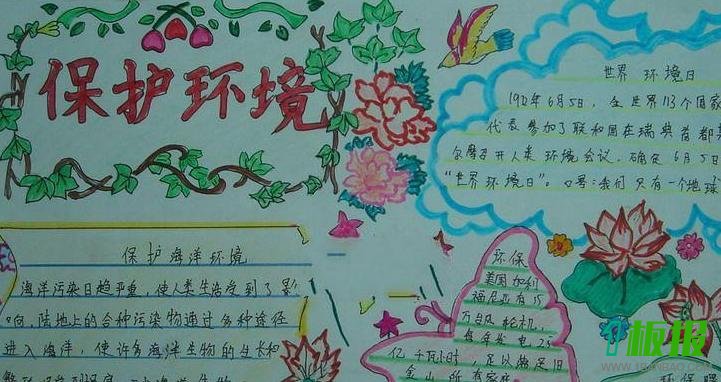 保护环境
世界 环境日
1972年6月5日, 全世界113个国家
代表参加了联和国在瑞典首都
尔摩召开人类环境会议, 确定6月5日
“世界环境日”。口号:我们只有一个地球
保护海洋环境
海洋污染日趋严重, 使人类生活受到了影
响, 陆地上的各种污染物通过多种途径
进入海洋, 使许多海洋生物的生长和
环保
美国加利
福尼亚有15
万台风轮机,
每年发电25
亿千瓦小时, 足以满足旧
金山所有家庭
板报
www.1banbao.com